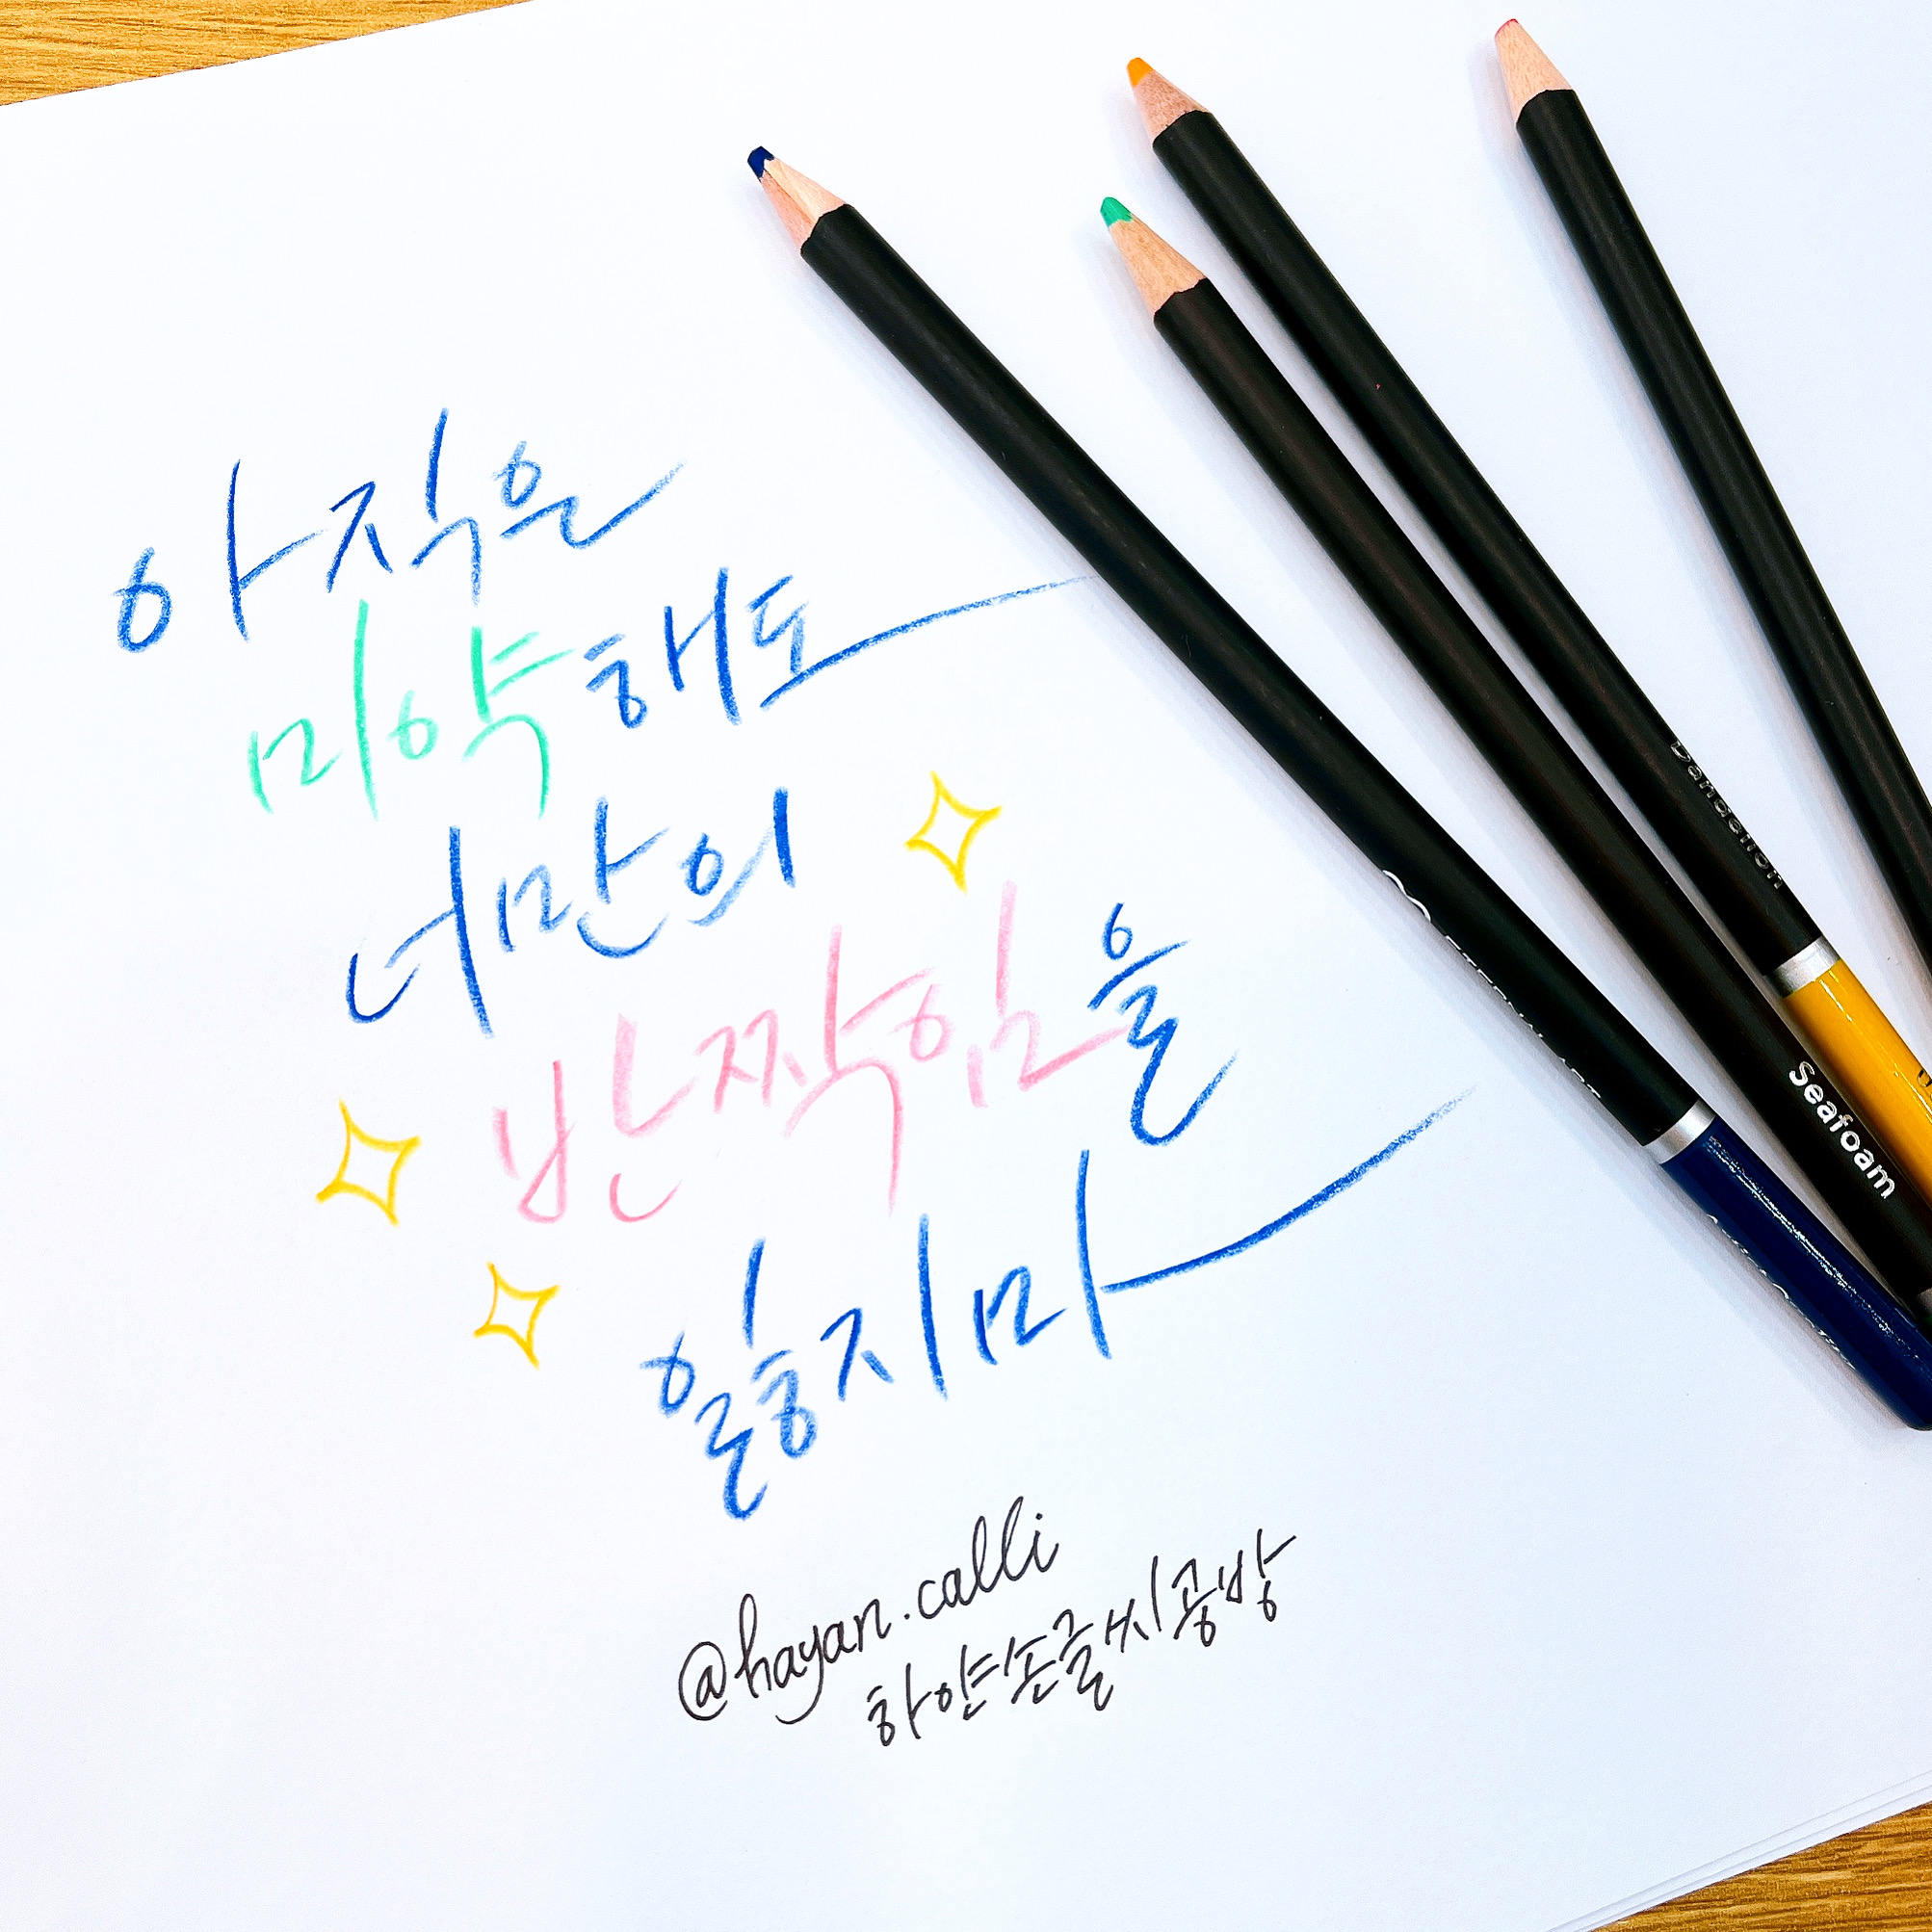 아직은
미약해도
너만의
반짝임을
잃지마
@hayan.calli
하얀손글씨공방
Dandelion
Seafoam